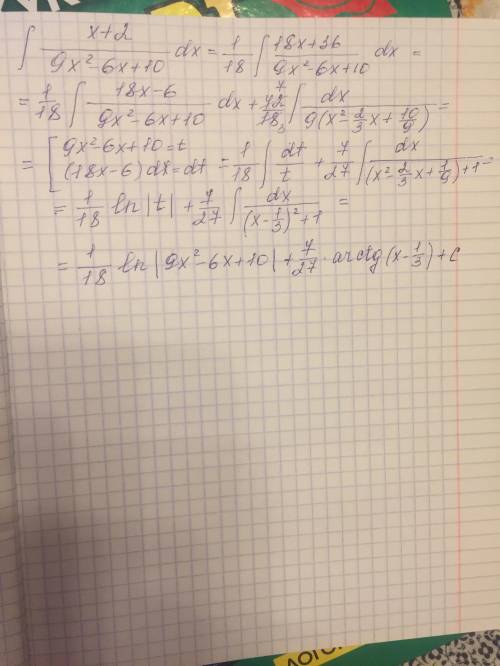 ∫ (x+2)/(9x²-6x+10) dx = 1/18 ∫ (18x+36)/(9x²-6x+10) dx =
= 1/18 ∫ (18x-6)/(9x²-6x+10) dx + 42/18 ∫ dx/(9(x²-2/3x+10/9)) =
= [ 9x²-6x+10=t
(18x-6)dx=dt = 1/18 ∫ dt/t + 7/27 ∫ dx/((x²-2/3x+1/9)+1) =
= 1/18 ln|t| + 7/27 ∫ dx/((x-1/3)²+1) =
= 1/18 ln|9x²-6x+10| + 7/27 · arctg(x-1/3)+C
ЛОГО